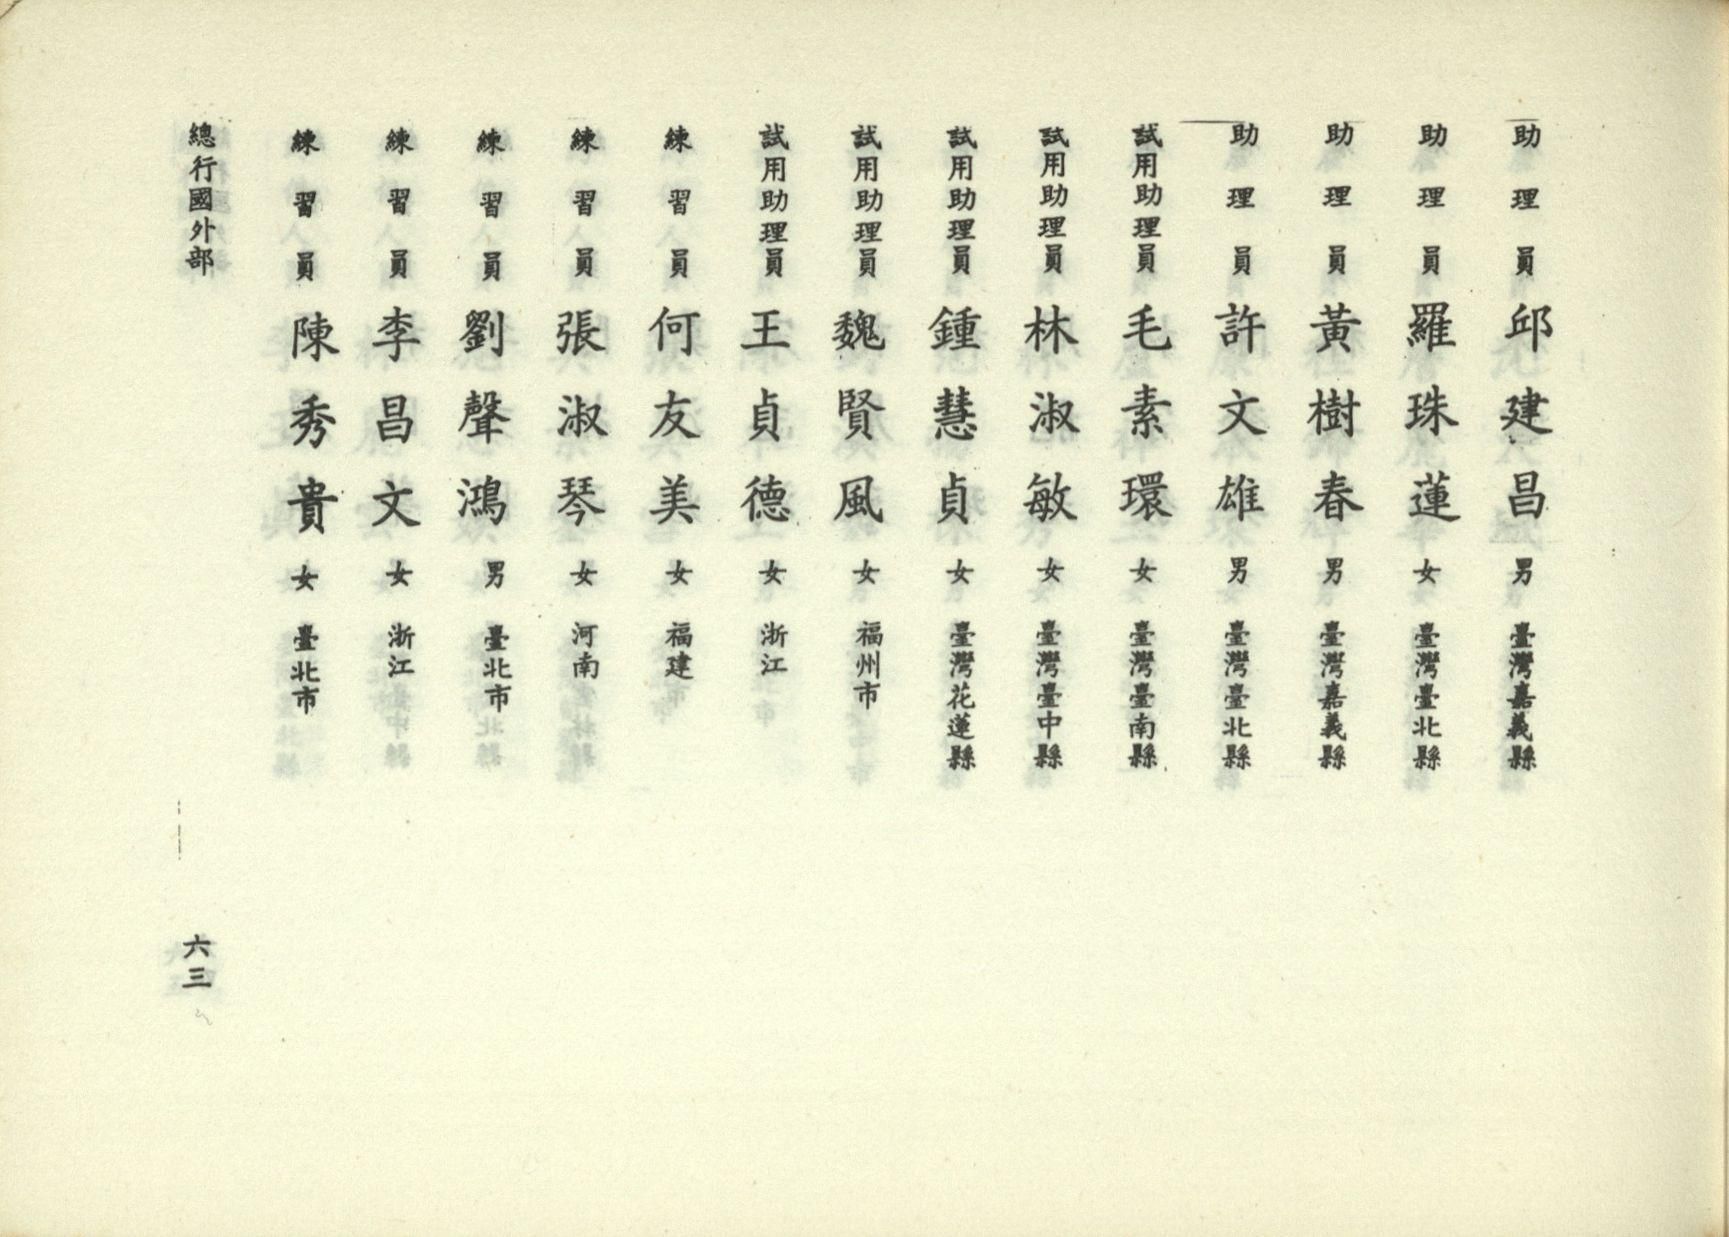 助理員 邱建昌 男 臺灣嘉義縣
助理員 羅珠蓮 女 臺灣臺北縣
助理員 黃樹春 男 臺灣嘉義縣
助理員 許文雄 男 臺灣臺北縣
試用助理員 毛素環 女 臺灣臺南縣
試用助理員 林淑敏 女 臺灣臺中縣
試用助理員 鍾慧貞 女 臺灣花蓮縣
試用助理員 魏賢風 女 福州市
試用助理員 王貞德 女 浙江
練習員 何友美 女 福建
練習員 張淑琴 女 河南
練習員 劉聲鴻 男 臺北市
練習員 李昌文 女 浙江
練習員 陳秀貴 女 臺北市
總行國外部 六三